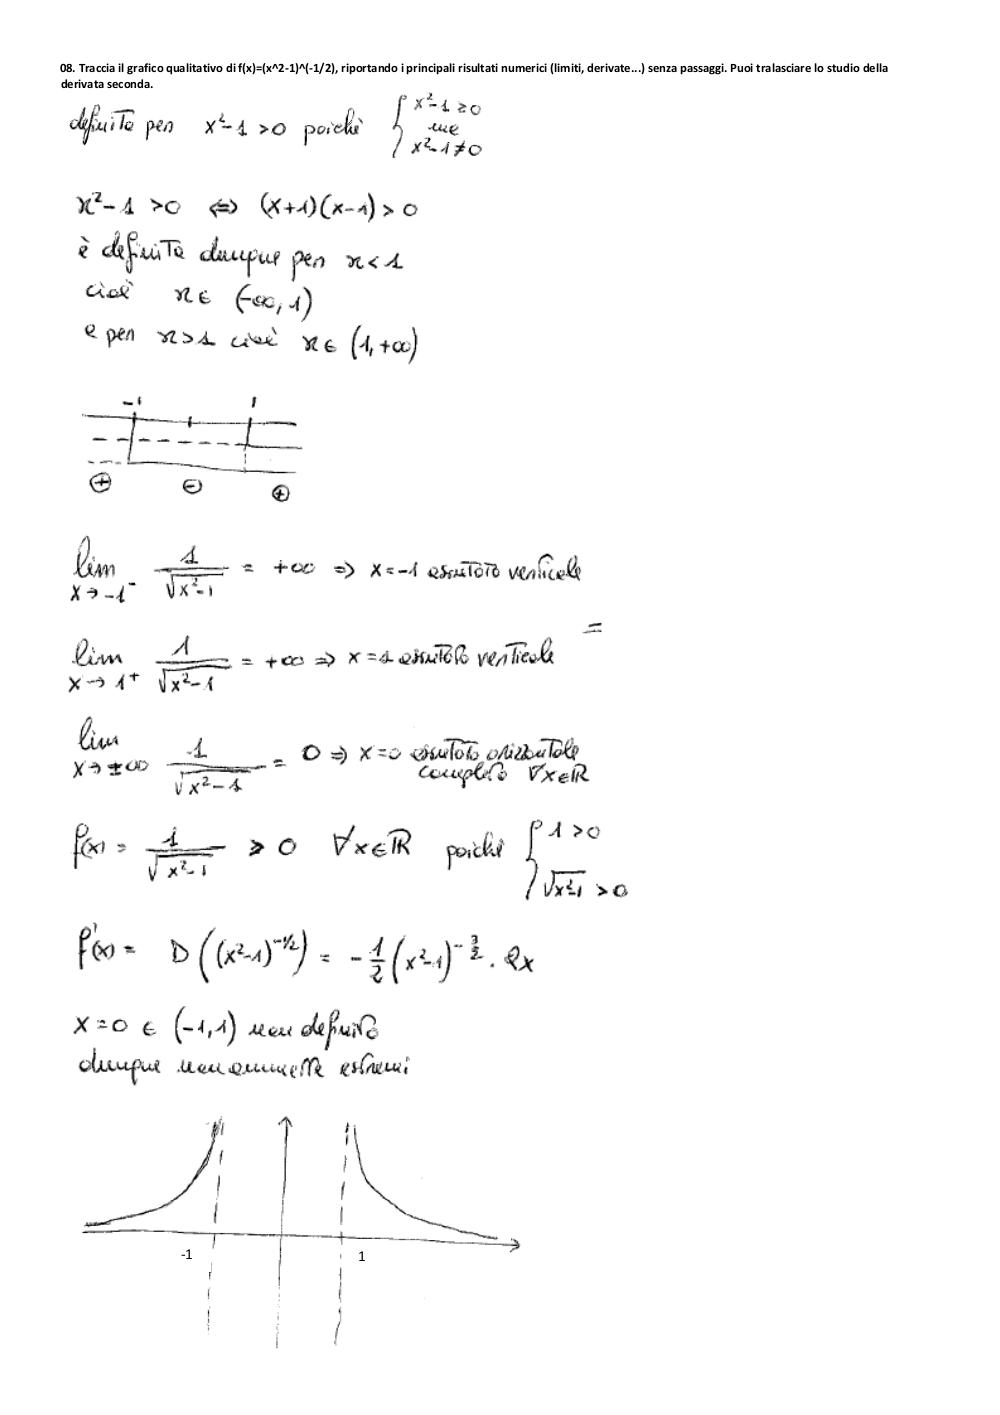 08. Traccia il grafico qualitativo di f(x)=(x^2-1)^(-1/2), riportando i principali risultati numerici (limiti, derivate...) senza passaggi. Puoi tralasciare lo studio della
derivata seconda.
definita per x²-1 >0 poiché { x²-1 ≥0 me x²-1≠0
x²-1 >0 ⇔ (x+1)(x-1) > 0
è definita dunque per x<1
cioè x∈ (-∞, 1)
e per x>1 cioè x∈ (1,+∞)
-1 1
+ - +
lim x→-1⁻ 1/√(x²-1) = +∞ ⇒ x=-1 asintoto verticale
=
lim x→1⁺ 1/√(x²-1) = +∞ ⇒ x=1 asintoto verticale
lim x→±∞ 1/√(x²-1) = 0 ⇒ x=0 asintoto orizzontale
completo ∀x∈ℝ
f(x) = 1/√(x²-1) > 0 ∀x∈ℝ poiché { 1>0 √(x²-1) >0
f'(x) = D((x²-1)^(-1/2)) = -1/2 (x²-1)^(-3/2) · 2x
x=0 ∈ (-1,1) non definito
dunque non ammette estremi
-1 1